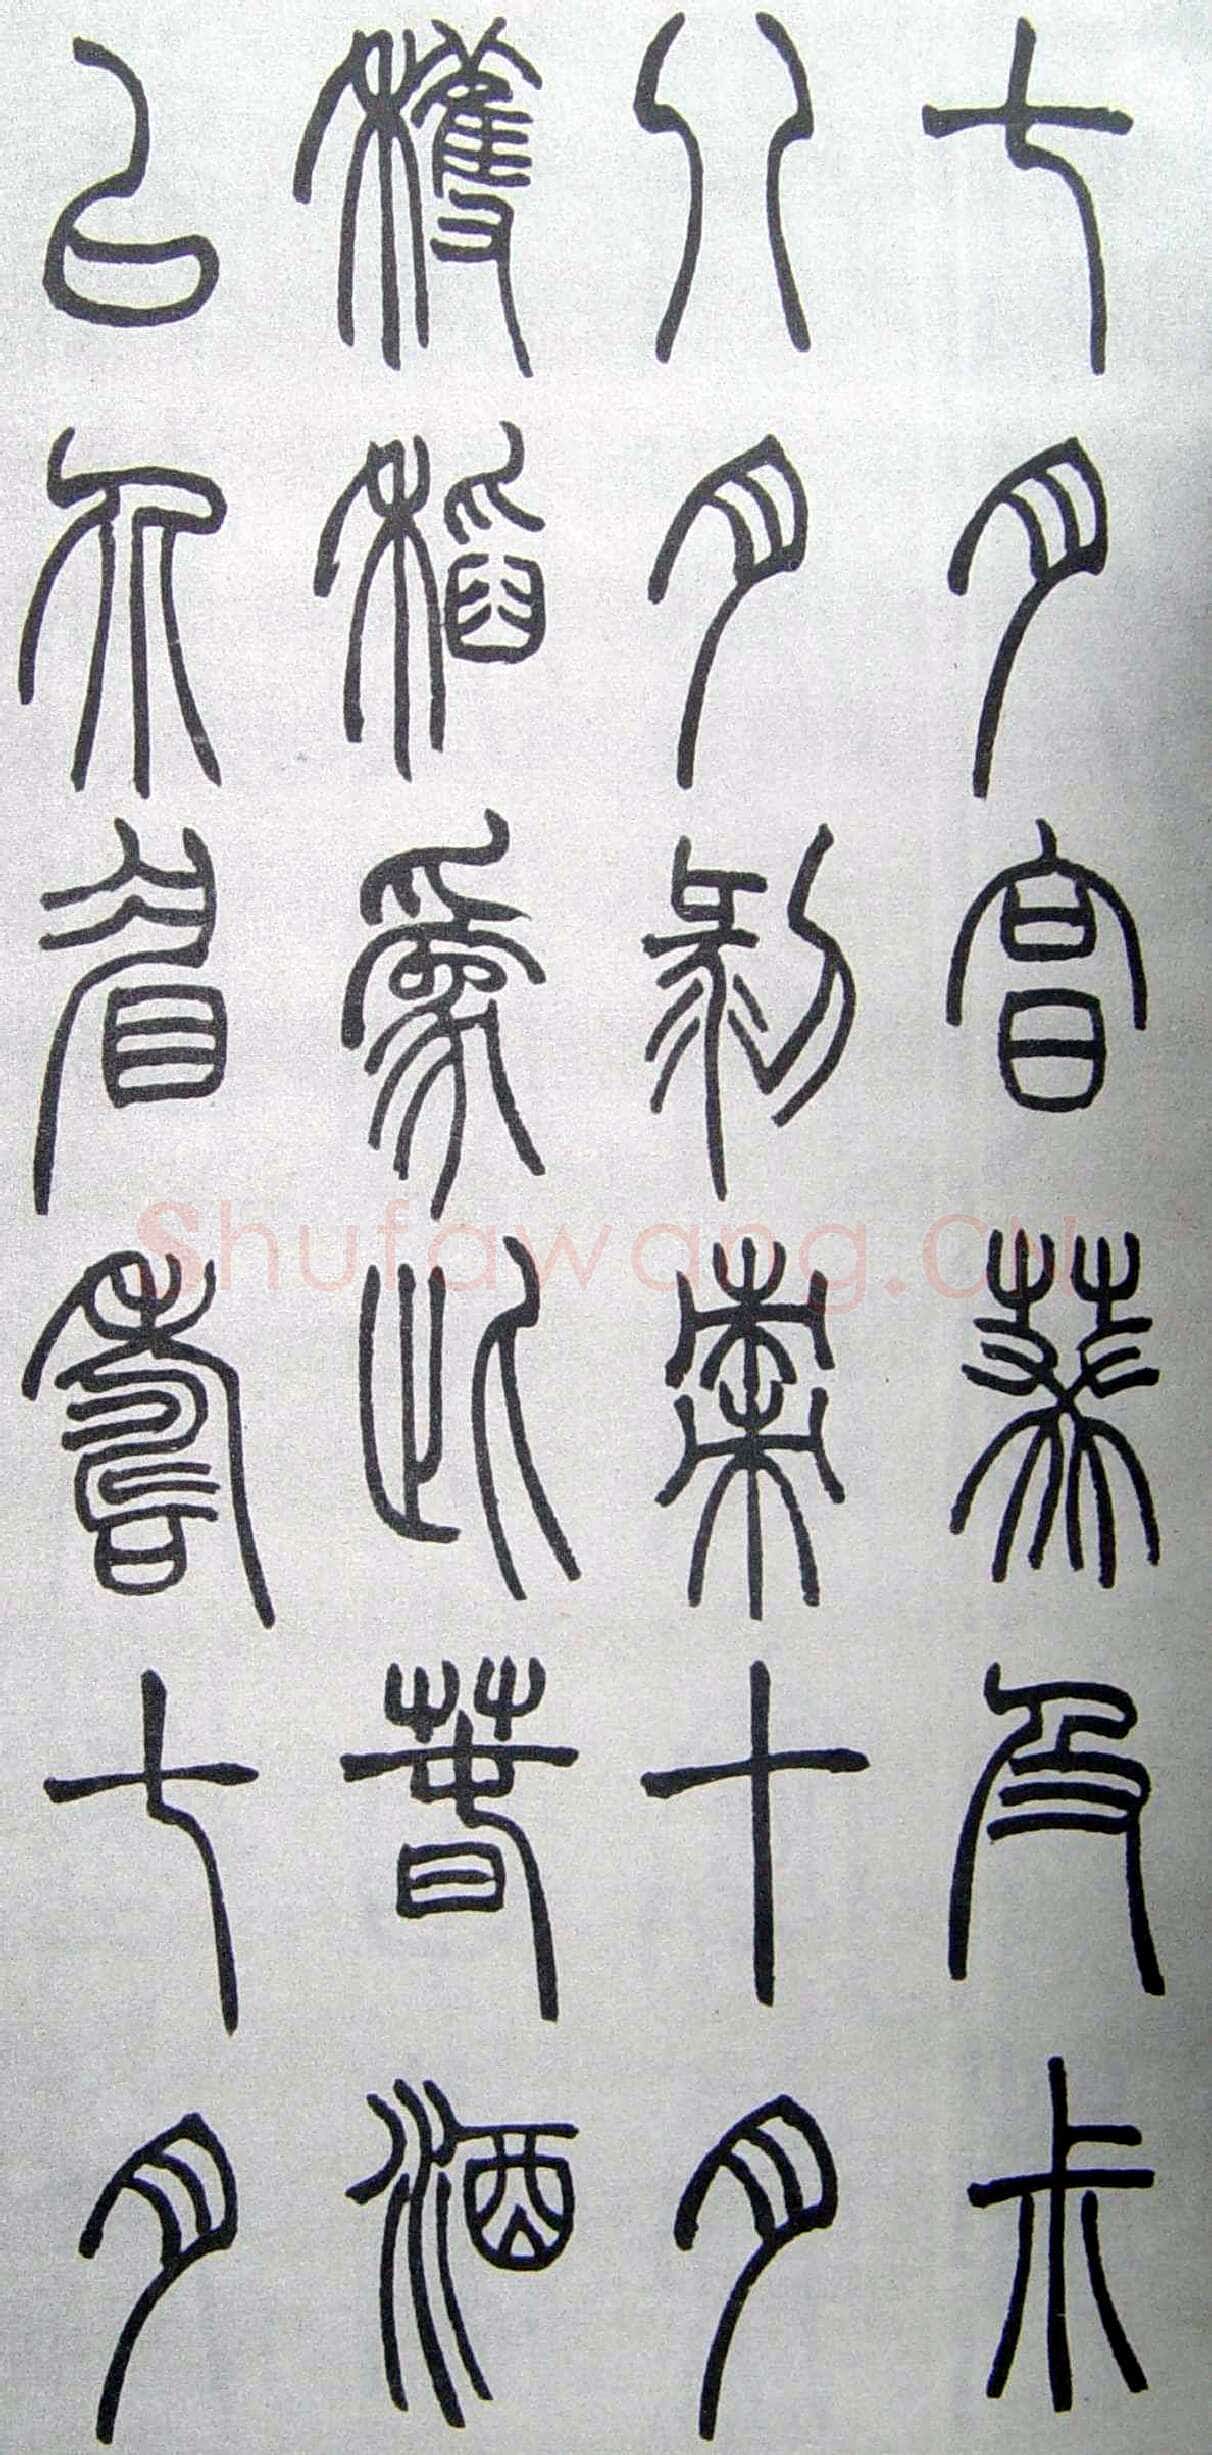 七月亯葵及尗
八月剝棗十月
穫稻爲此春酒
以介眉壽七月
Shufawang.cn